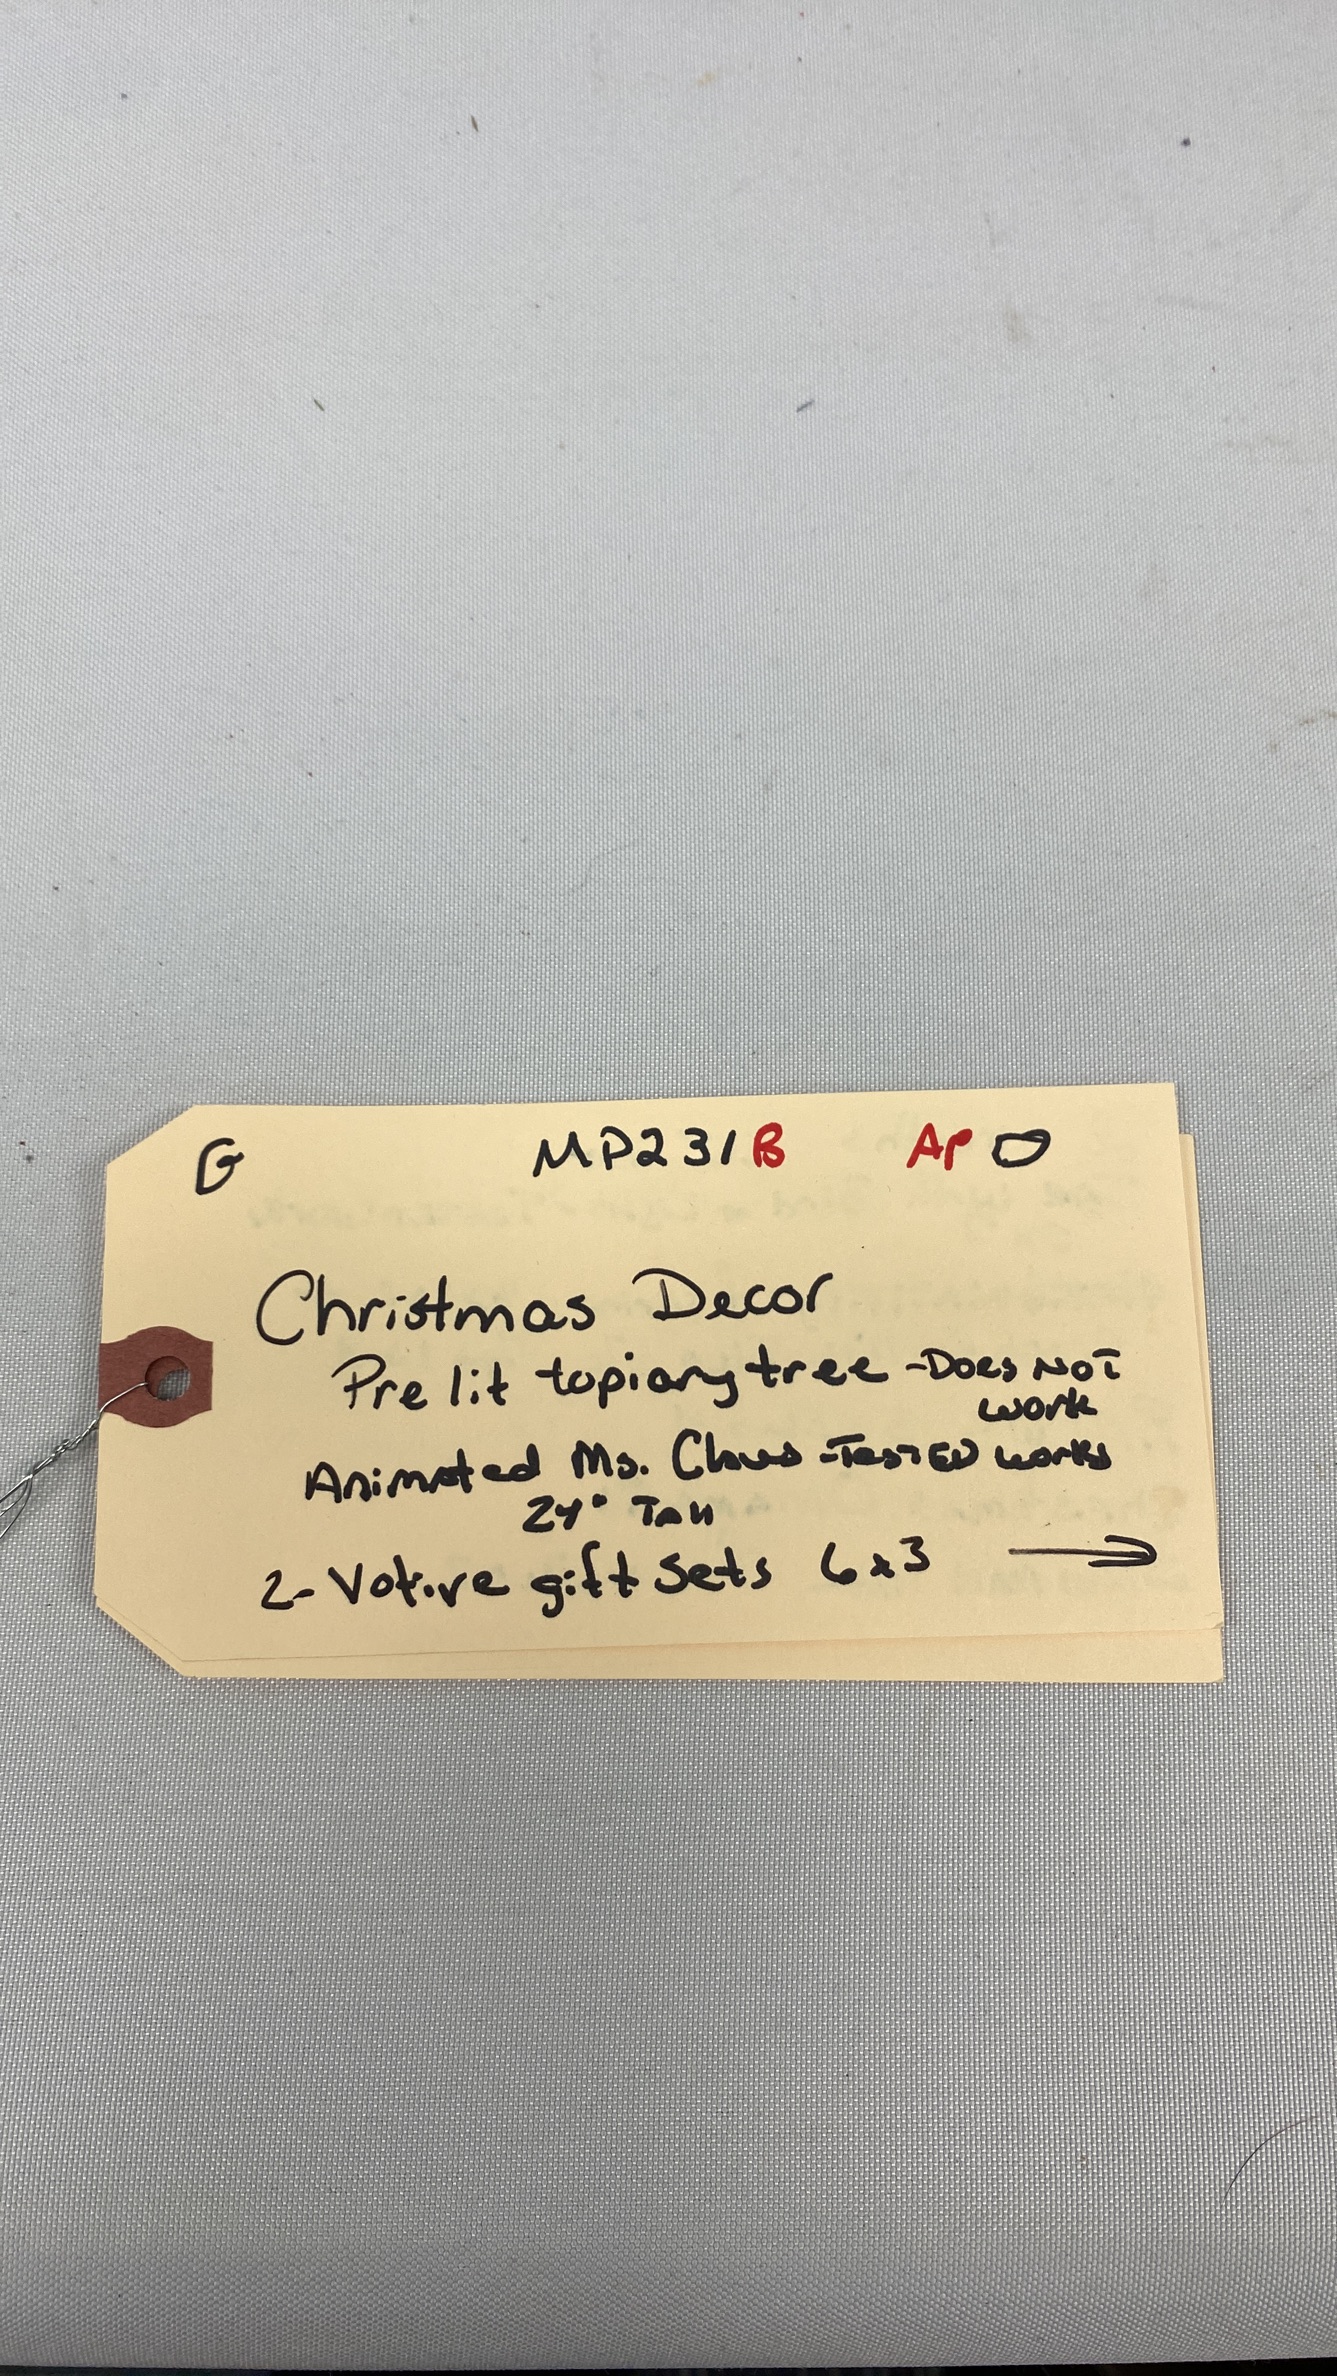 G MP231B AP O
Christmas Decor
Pre lit topiary tree - Does NOT
work
Animated Ms. Claus - TESTED works
24" Tall
2- Votive gift sets 6x3 →